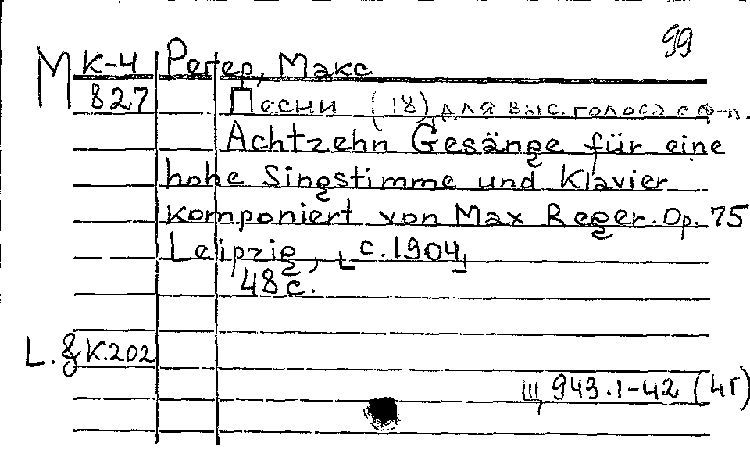 99
М К-4 Регер, Макс
827 Песни (18) для выс. голоса с ф-п.
Achtzehn Gesänge für eine
hohe Singstimme und Klavier
komponiert von Max Reger. Op. 75
Leipzig, [c. 1904]
48 с.
L. & K. 202
Ш 943.1-42 (4г)